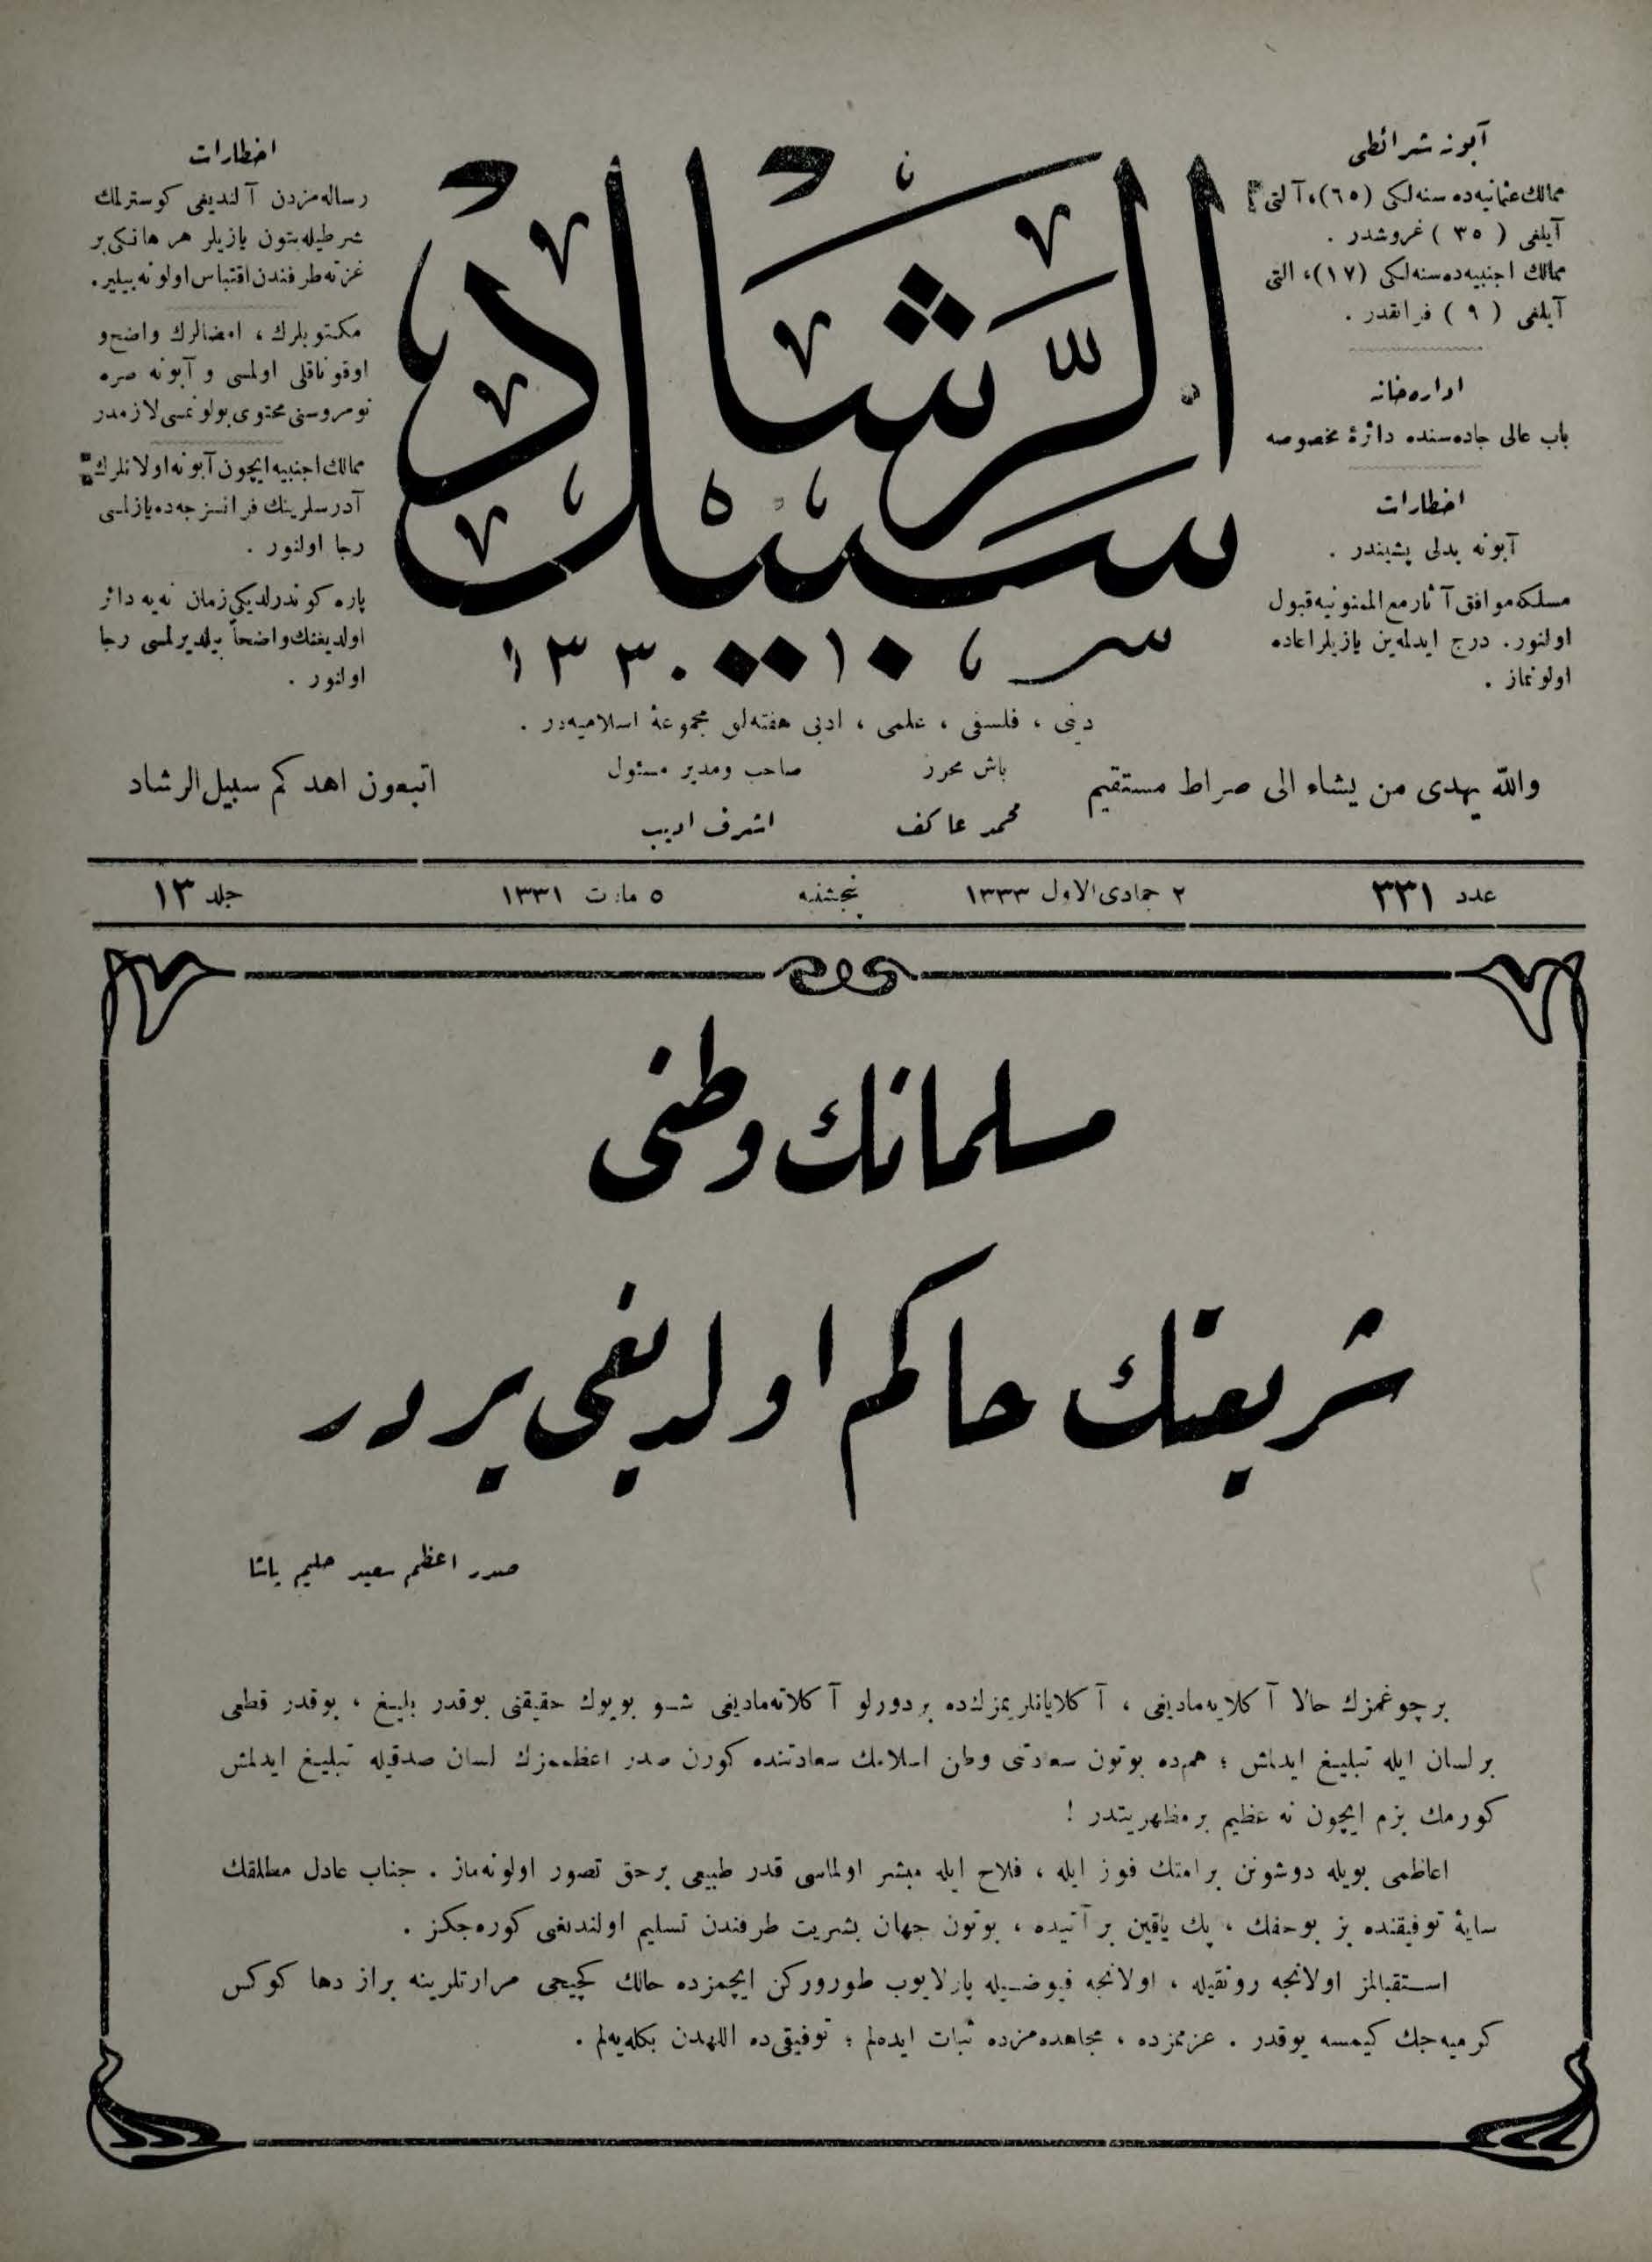 آبونه شرائطی
ممالك عثمانيه‌ده سنه‌لكی (٦٥)، آلتی
آيلغی ( ٣٥ ) غروشدر .
ممالك اجنبيه‌ده سنه‌لكی (١٧)، التی
آيلغی ( ٩ ) فرانقدر .
اداره‌خانه
باب عالی جاده‌سنده دائرۀ مخصوصه
اخطارات
آبونه بدلی پشيندر .
مسلكه موافق آثار مع الممنونيه قبول
اولنور. درج ايدلمه‌ين يازيلر اعاده
اولونماز .
سبيل الرشاد
١٣٣٠
اخطارات
رساله‌مزدن آلنديغی كوسترلمك
شرطيله بتون يازيلر هر هانكی بر
غزته طرفندن اقتباس اولونه بيلير.
مكتوبلرك ، امضالرك واضح و
اوقوناقلی اولمسی و آبونه صره
نومروسنی محتوی بولونمسی لازمدر
ممالك اجنبيه ايچون آبونه اولانلرك
آدرسلرينك فرانسزجه‌ده يازلمسی
رجا اولنور .
پاره كوندرلديكی زمان نه‌يه دائر
اولديغنك واضحاً بيلديرلمسی رجا
اولنور .
دينی ، فلسفی ، علمی ، ادبی هفته‌لق مجموعۀ اسلاميه‌در .
والله يهدی من يشاء الی صراط مستقيم
باش محرر
محمد عاكف
صاحب ومدير مسئول
اشرف اديب
اتبعون اهدكم سبيل الرشاد
عدد ٣٣١
٢ جمادی الاول ١٣٣٣
پنجشنبه
٥ مارت ١٣٣١
جلد ١٣
مسلمانك وطنی
شريعتك حاكم اولديغی يردر
صدر اعظم سعيد حليم پاشا
بر چوغمزك حالا آكلايه‌ماديغی ، آكلايانلريمزك‌ده بر دورلو آكلاته‌ماديغی شو بويوك حقيقتی بوقدر بليغ ، بوقدر قطعی
بر لسان ايله تبليغ ايدلمش ؛ هم‌ده بوتون سعادتی وطن اسلامك سعادتنده كورن صدر اعظممزك لسان صدقيله تبليغ ايدلمش
كورمك بزم ايچون نه عظيم بر مظهريتدر !
اعاظمی بويله دوشونن بر امتك فوز ايله ، فلاح ايله مبشر اولماسی قدر طبيعی بر حق تصور اولونه‌ماز . جناب عادل مطلقك
سايۀ توفيقنده بز بو حقك ، پك ياقين بر آتيده ، بوتون جهان بشريت طرفندن تسليم اولنديغنی كوره‌جكز .
استقبالمز اولانجه رونقيله ، اولانجه فيوضيله پارلايوب طورور كن ايچمزده حالك كچيجی مرارتلرينه براز دها كوكس
كرميه‌جك كيمسه يوقدر . عزممزده ، مجاهده‌مزده ثبات ايده‌لم ؛ توفيقی‌ده اللهدن بكله‌يه‌لم .